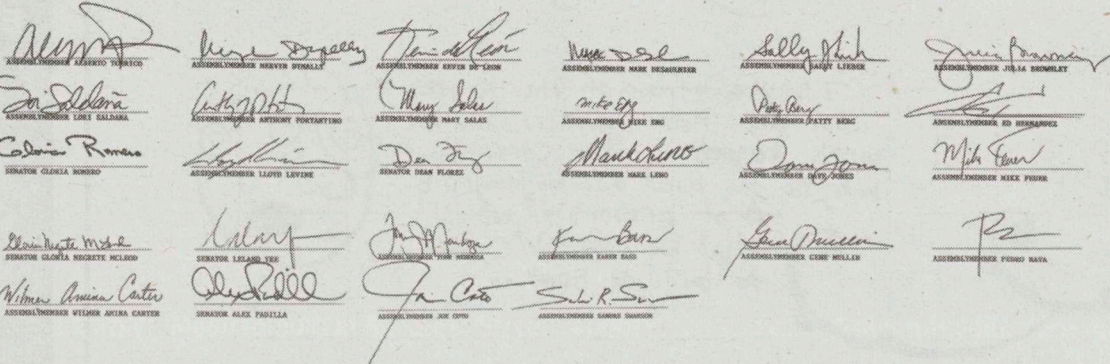 ASSEMBLYMEMBER ALBERTO TORRICO ASSEMBLYMEMBER MERVYN DYMALLY ASSEMBLYMEMBER KEVIN DE LEON ASSEMBLYMEMBER MARK DESAULNIER ASSEMBLYMEMBER SALLY LIEBER ASSEMBLYMEMBER JULIA BROWNLEY
Lori Saldaña Mary Salas Mike Eng Patty Berg
ASSEMBLYMEMBER LORI SALDANA ASSEMBLYMEMBER ANTHONY PORTANTINO ASSEMBLYMEMBER MARY SALAS ASSEMBLYMEMBER MIKE ENG ASSEMBLYMEMBER PATTY BERG ASSEMBLYMEMBER ED HERNANDEZ
Gloria Romero Mark Leno Dave Jones Mike Feuer
SENATOR GLORIA ROMERO ASSEMBLYMEMBER LLOYD LEVINE SENATOR DEAN FLOREZ ASSEMBLYMEMBER MARK LENO ASSEMBLYMEMBER DAVE JONES ASSEMBLYMEMBER MIKE FEUER
Gloria Negrete McLeod Karen Bass Gene Mullin
SENATOR GLORIA NEGRETE MCLEOD SENATOR LELAND YEE ASSEMBLYMEMBER TONY MENDOZA ASSEMBLYMEMBER KAREN BASS ASSEMBLYMEMBER GENE MULLIN ASSEMBLYMEMBER PEDRO NAVA
Wilmer Amina Carter Alex Padilla Joe Coto
ASSEMBLYMEMBER WILMER AMINA CARTER SENATOR ALEX PADILLA ASSEMBLYMEMBER JOE COTO ASSEMBLYMEMBER SANDRE SWANSON